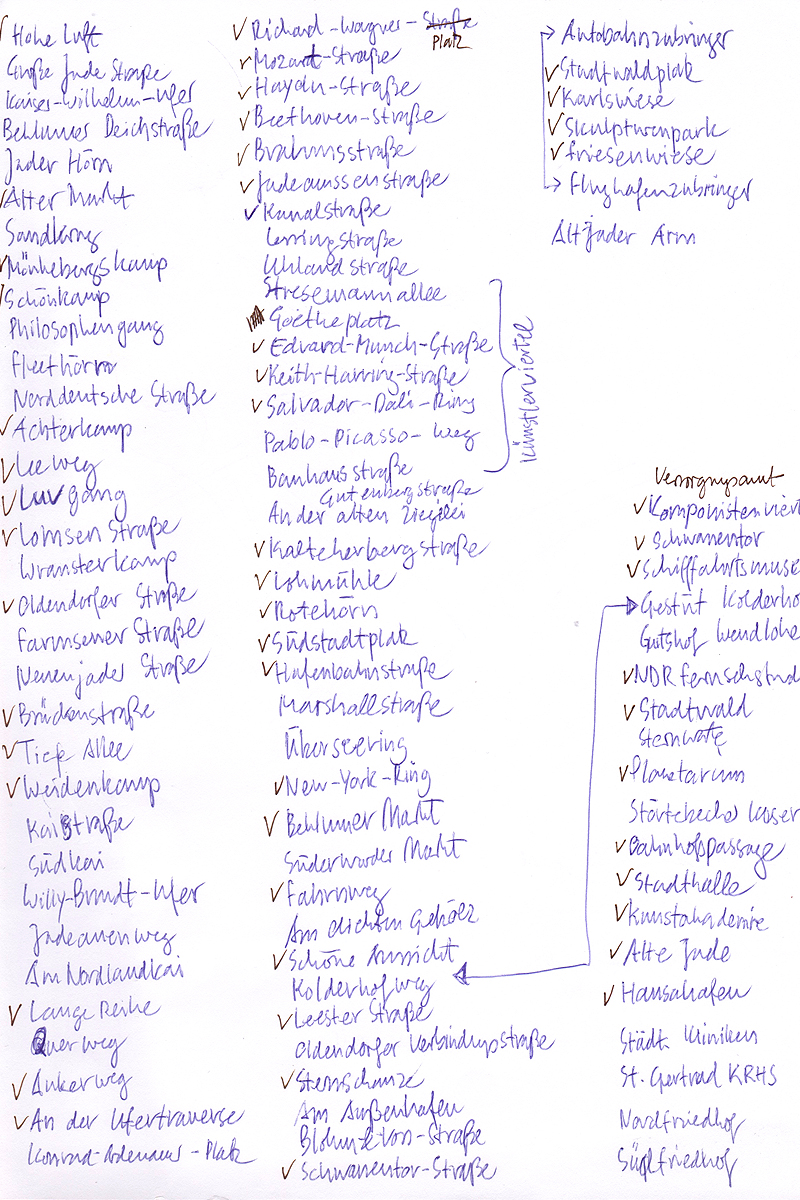 ✓ Hohe Luft
Große Jade Straße
Kaiser-Wilhelm-Ufer
Behlumer Deichstraße
Jader Hörn
✓ Alter Markt
Sandkrug
✓ Mönkebergskamp
✓ Schönkamp
Philosophengang
Fleethörn
Norddeutsche Straße
✓ Achterkamp
✓ Leeweg
✓ Luvgang
✓ Lomsen Straße
Wransterkamp
✓ Oldendorfer Straße
Farmsener Straße
Neuenjader Straße
✓ Brückenstraße
✓ Tiefe Allee
✓ Weidenkamp
Kaistraße
Südkai
Willy-Brandt-Ufer
Jadeauenweg
Am Nordlandkai
✓ Lange Reihe
Querweg
✓ Ankerweg
✓ An der Ufertraverse
Konrad-Adenauer-Platz
✓ Richard-Wagner-Straße
Platz
✓ Mozart-Straße
✓ Haydn-Straße
✓ Beethoven-Straße
✓ Brahmsstraße
✓ Jadeaussenstraße
✓ Kanalstraße
Lessingstraße
Uhlandstraße
Stresemannallee
Goetheplatz
✓ Edvard-Munch-Straße
✓ Keith-Harring-Straße
✓ Salvador-Dali-Ring
Pablo-Picasso-Weg
Bauhausstraße
Künstlerviertel
Gutenbergstraße
An der alten Ziegelei
✓ Kalteherbergstraße
✓ Lohmühle
✓ Rotehörn
✓ Südstadtplatz
✓ Hafenbahnstraße
Marshallstraße
Überseering
✓ New-York-Ring
✓ Behlumer Markt
Süderwarder Markt
✓ Fahrnweg
Am dichten Gehölz
✓ Schöne Aussicht
Kolderhofweg
✓ Leester Straße
Oldendorfer Verbindungsstraße
✓ Sternschanze
Am Außenhafen
Blohm & Von-Straße
✓ Schwanentor-Straße
Autobahnzubringer
✓ Stadtwaldplatz
✓ Karlswiese
✓ Skulpturenpark
✓ Friesenwiese
Flughafenzubringer
Altjader Arm
Versorgungsamt
✓ Komponistenviert
✓ Schwanentor
✓ Schifffahrtsmuse
Gestüt Kolderho
Gutshof Wendlohe
✓ NDR Fernsehstud
✓ Stadtwald
Sternwarte
✓ Planetarium
Störtebecker Kaser
✓ Bahnhofspassage
✓ Stadthalle
✓ Kunstakademie
✓ Alte Jade
✓ Hansahafen
Städt. Kliniken
St. Gertrud KRHS
Nordfriedhof
Südfriedhof